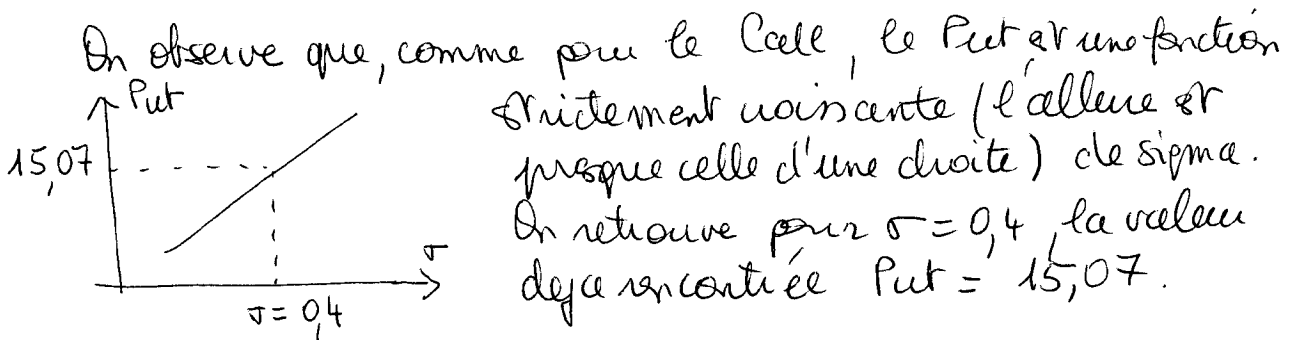 On observe que, comme pour le Call, le Put est une fonction
Put
strictement croissante (l'allure est
15,07
presque celle d'une droite) de sigma.
On retrouve pour σ = 0,4, la valeur
σ
deja rencontrée Put = 15,07.
σ = 0,4